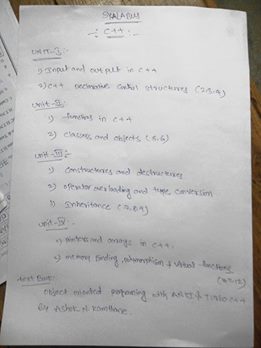 SYALABUS
-: C++ :-
UNIT-I :-
1) Input and output in C++
2) C++ Declarations Control structures (2,3,4)
Unit-II :-
1) functions in C++
2) classes and objects (5,6)
Unit-III :-
1) Constructures and destructures
2) operator overloading and type conversion
Inheritance (7,8,9)
Unit-IV :-
1) pointers and arrays in C++.
2) memory Binding, polymorphism & virtual functions
Text Book:-
Object oriented programing with ANSI & TURBO C++
By Ashok N. Kamthane.